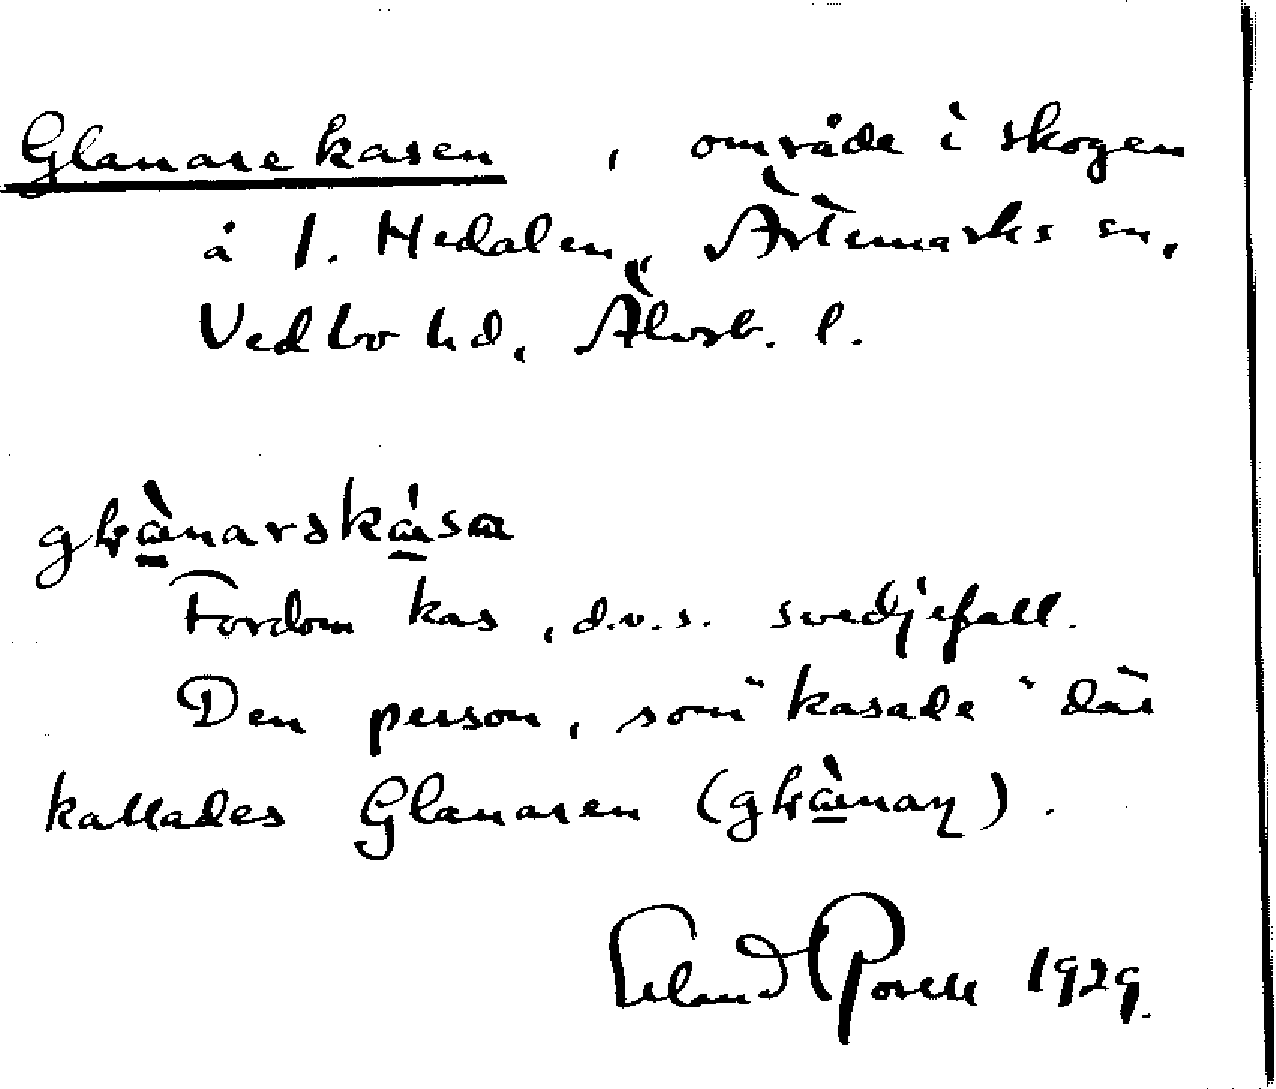 Glanarekasen, område i skogen
å 1. Hedalen, Ärtemarks sn,
Vedbo hd, Älvsb. l.
Fordom kas, d.v.s. svedjefall.
Den person, som "kasade" där
kallades Glanaren
Erland Rosell 1929.